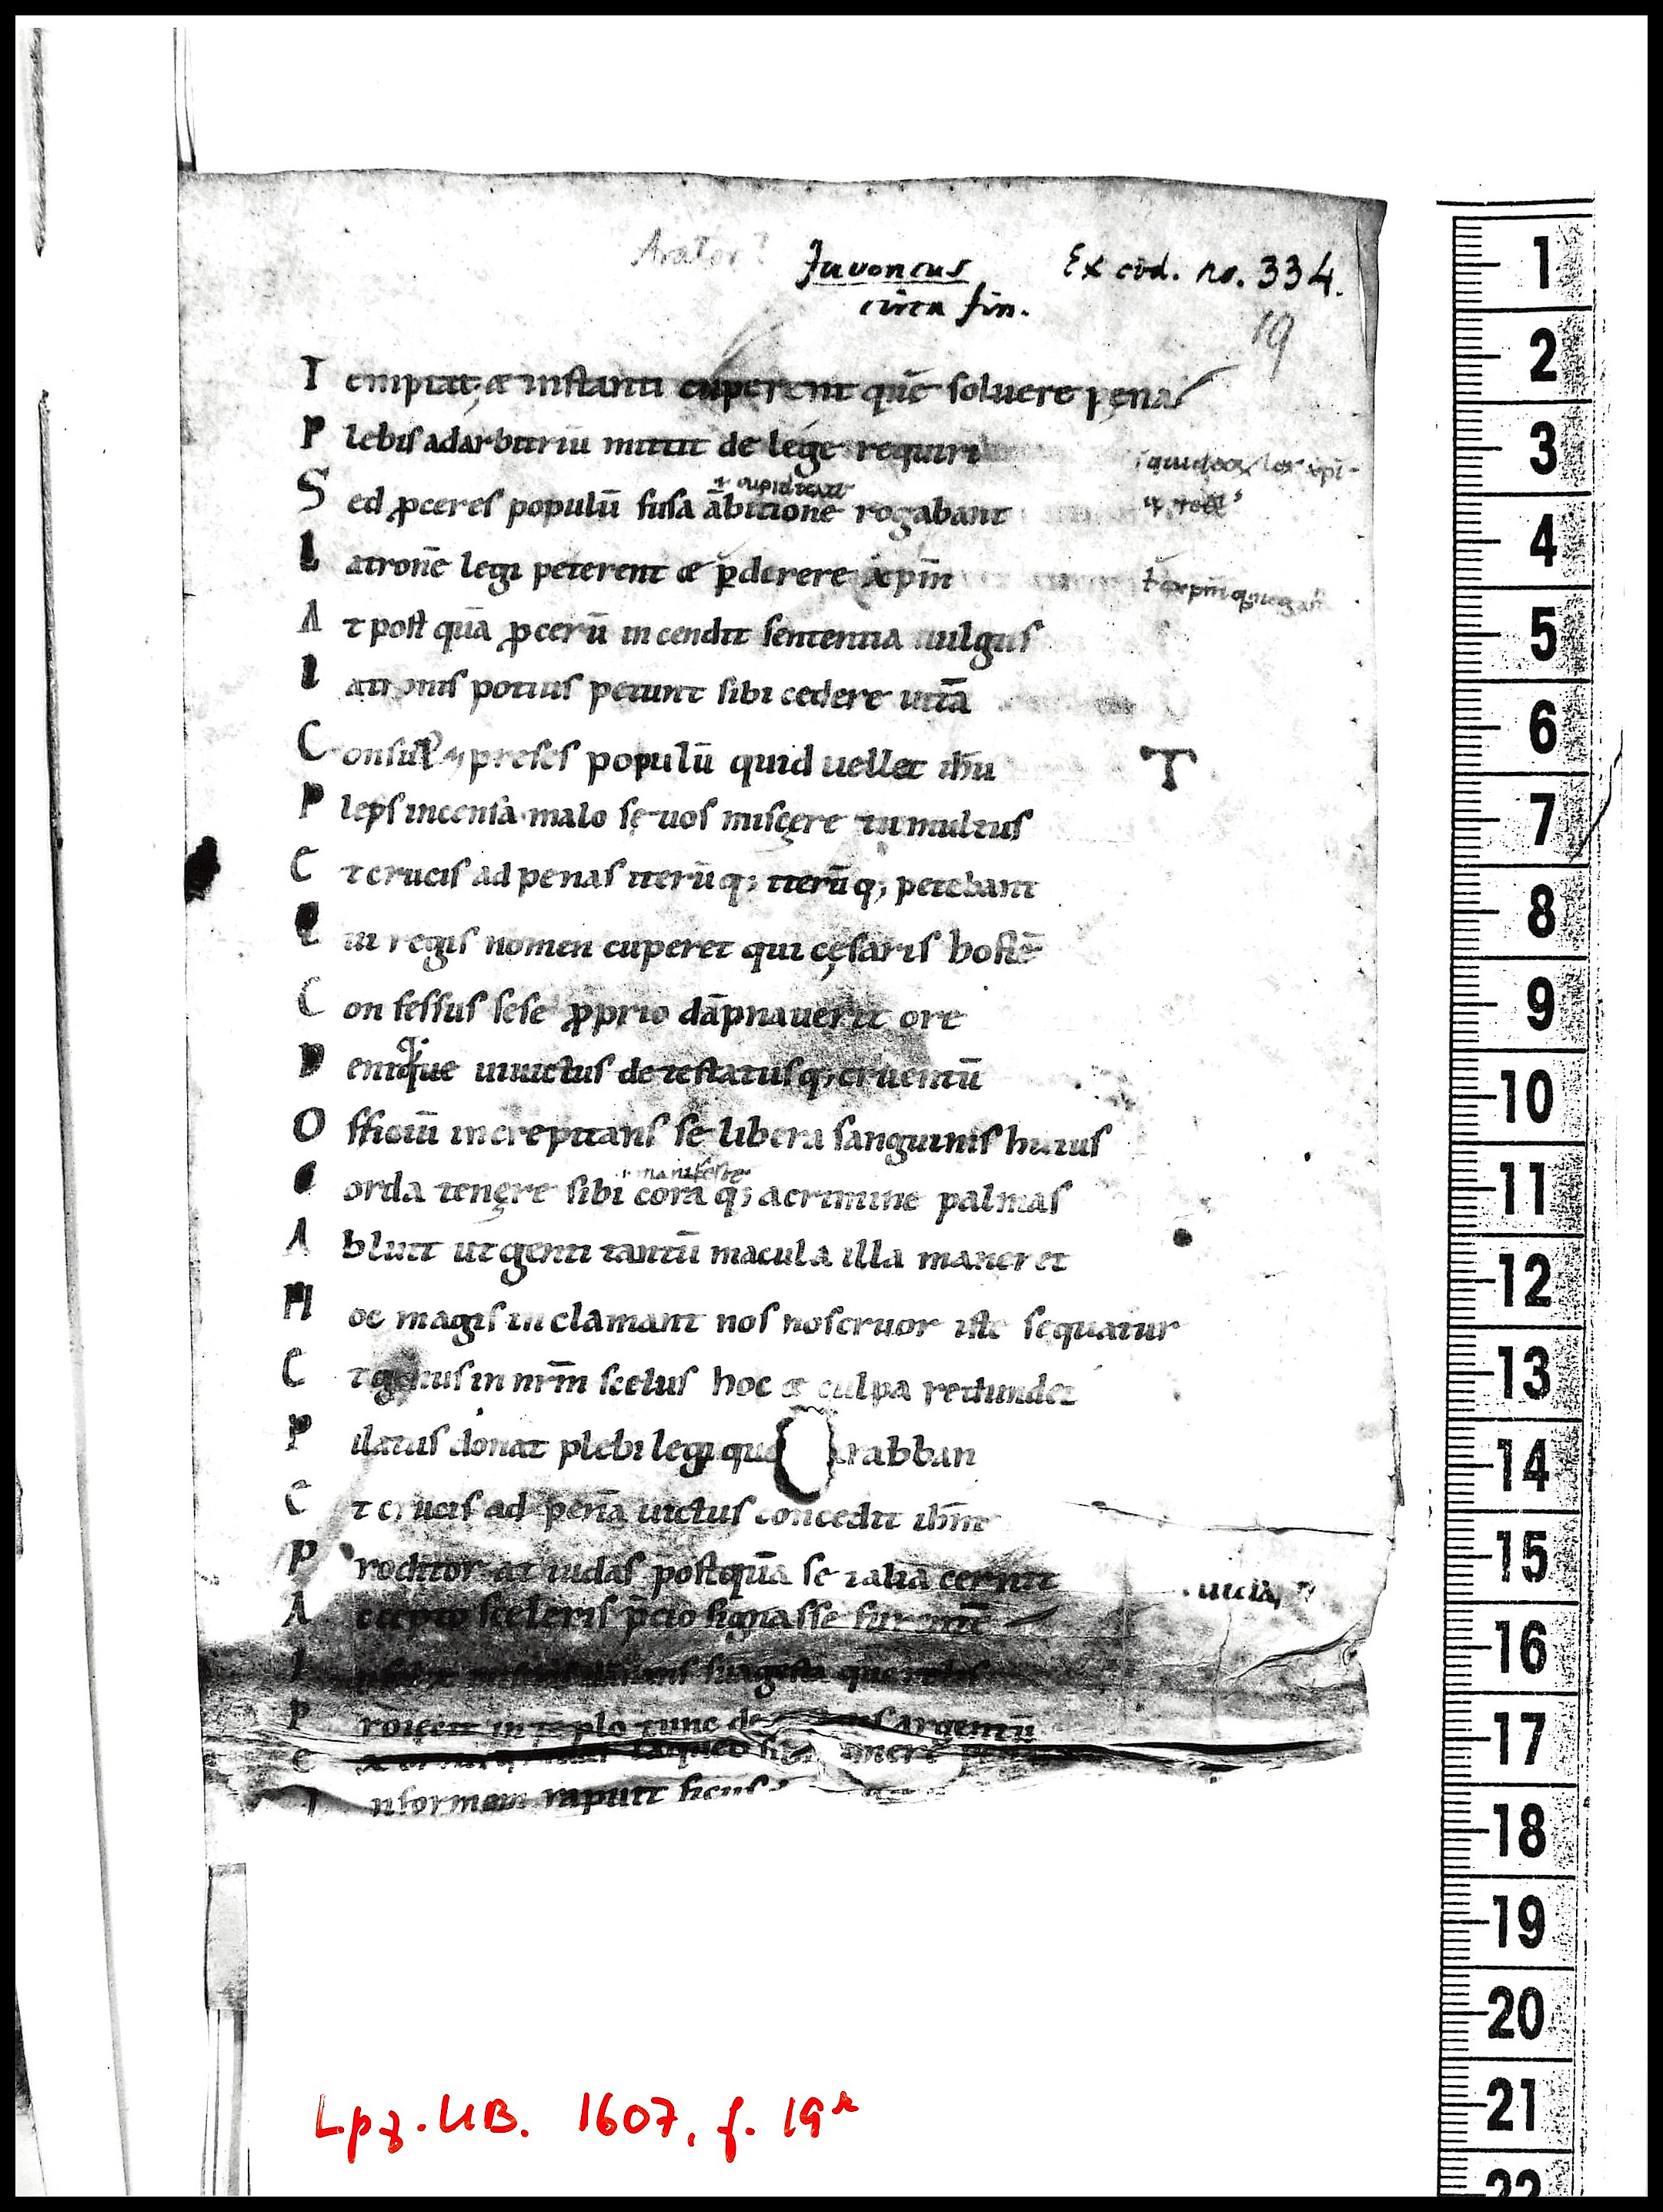 Arator?
Juvencus
circa fin.
Ex cod. no. 334.
19
T emptat; & instanti cuperent quē soluere pęnas
P lebis ad arbitriū mittit de lege requiri
ł cupiditate
S ed ꝓceres populū fusa ābitione rogabant
L atronē legi peterent & ꝑderere xp̄m
A t post quā ꝓcerū incendit sententia uulgus
L atronis potius petunt sibi cedere uitā
C onsulit preses populū quid uellet ih̄u
T
P leps incensa malo sęuos miscęre tumultus
E t crucis ad penas iterūq; iterūq; petebant
Q ui regis nomen cuperet qui cęsaris hostē
C on fessus sese ꝓprio dāpnauerit ore
D enique uiuictus detestatusq; cruentū
O fficiū increpitans se libera sanguinis huius
ł manifeste
C orda tenęre sibi corāq; a crimine palmas
A bluit ut genti tantū macula illa maneret
H oc magis inclamant nos nos cruor iste sequatur
E t genus in nr̄m scelus hoc & culpa redundet
P ilatus donat plebi legique rabban
E t crucis ad penā uictus concedit ih̄m
P roditor at iudas postquā se talia cernit
. iudas
A ccepto sceleris p̄cio signasse furentē
I gesta querelas
P roiecit in tēplo tunc argentū
E laqueo
I nformem rapuit ficus
Lpz. UB. 1607, f. 19r
1
2
3
4
5
6
7
8
9
10
11
12
13
14
15
16
17
18
19
20
21
22